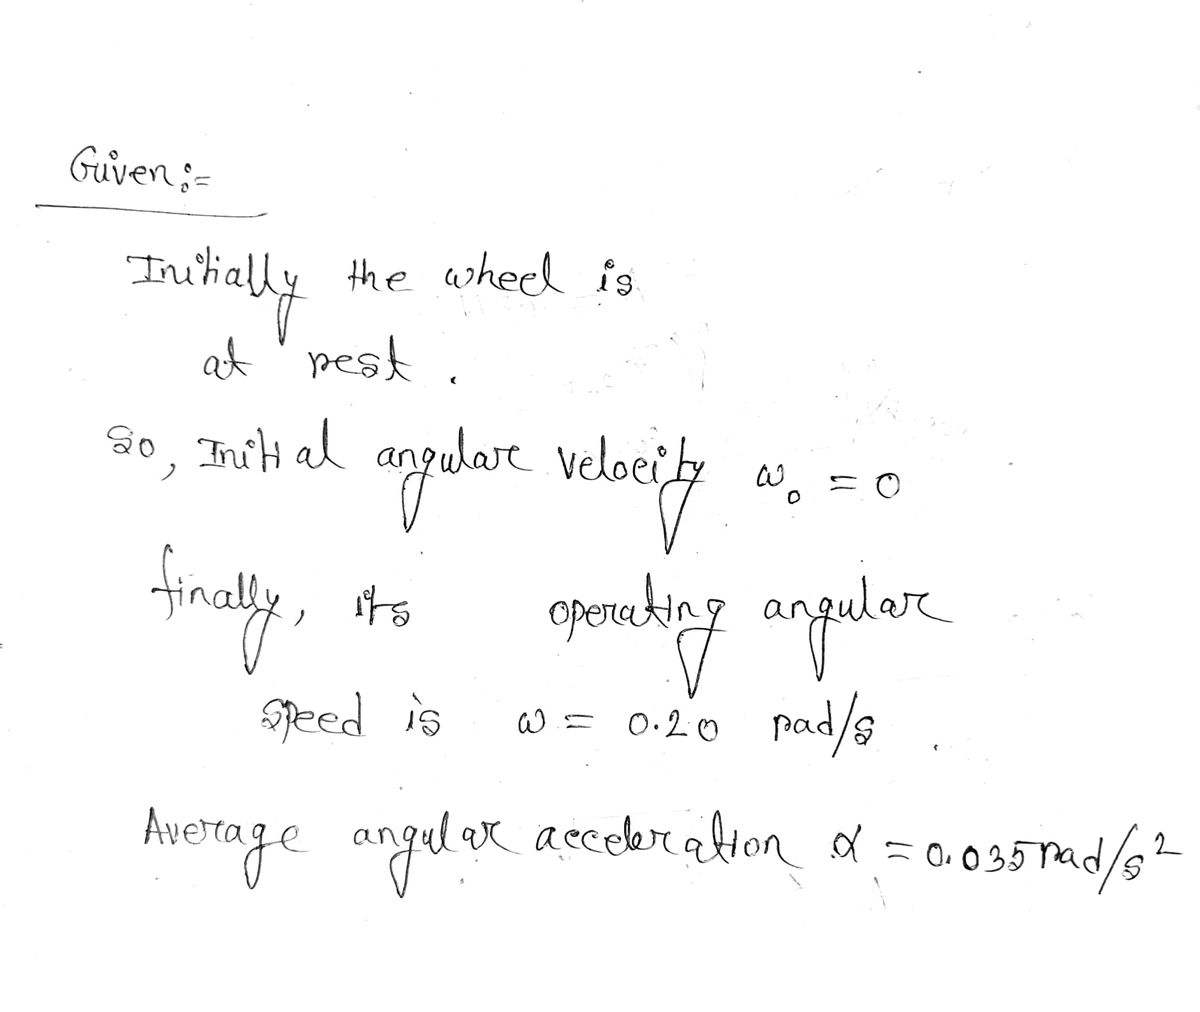 Given :=
Initially the wheel is
at rest .
So, Initial angular velocity ω₀ = 0
finally, its operating angular
speed is ω = 0.20 rad/s .
Average angular acceleration α = 0.035 rad/s²